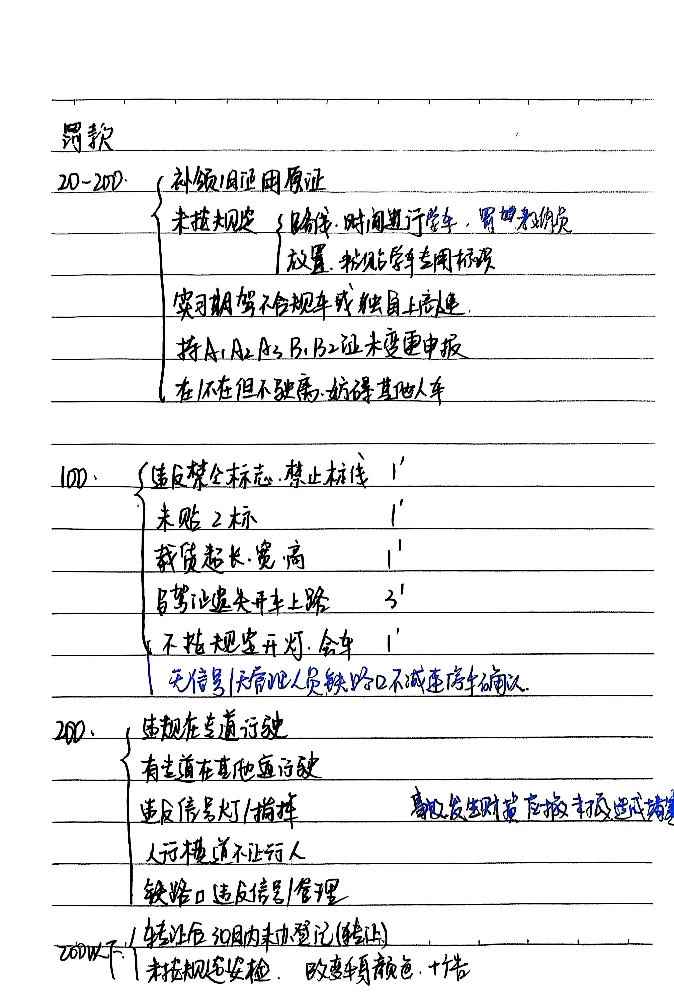 罚款
20-200. 补领旧证用原证
未按规定 路线.时间进行学车,罚教练员
放置.粘贴学车专用标识
实习期驾不合规车或独自上高速.
持A1A2A3B1B2证未变更申报
在/不在但不驶离.妨碍其他人车
100. 违反禁令标志.禁止标线 1'
未贴2标 1'
载货超长.宽.高 1'
驾证遗失开车上路 3'
不按规定开灯.会车 1'
无信号/无管理人员铁路口不减速停车确认.
200. 违规在专道行驶
有专道在其他道行驶
违反信号灯/指挥 发生财损应撤未撤造成堵塞
人行横道不让行人
铁路口违反信号/管理
200以下: 转让后30日内未办登记(转让)
未按规定安检. 改变车身颜色.